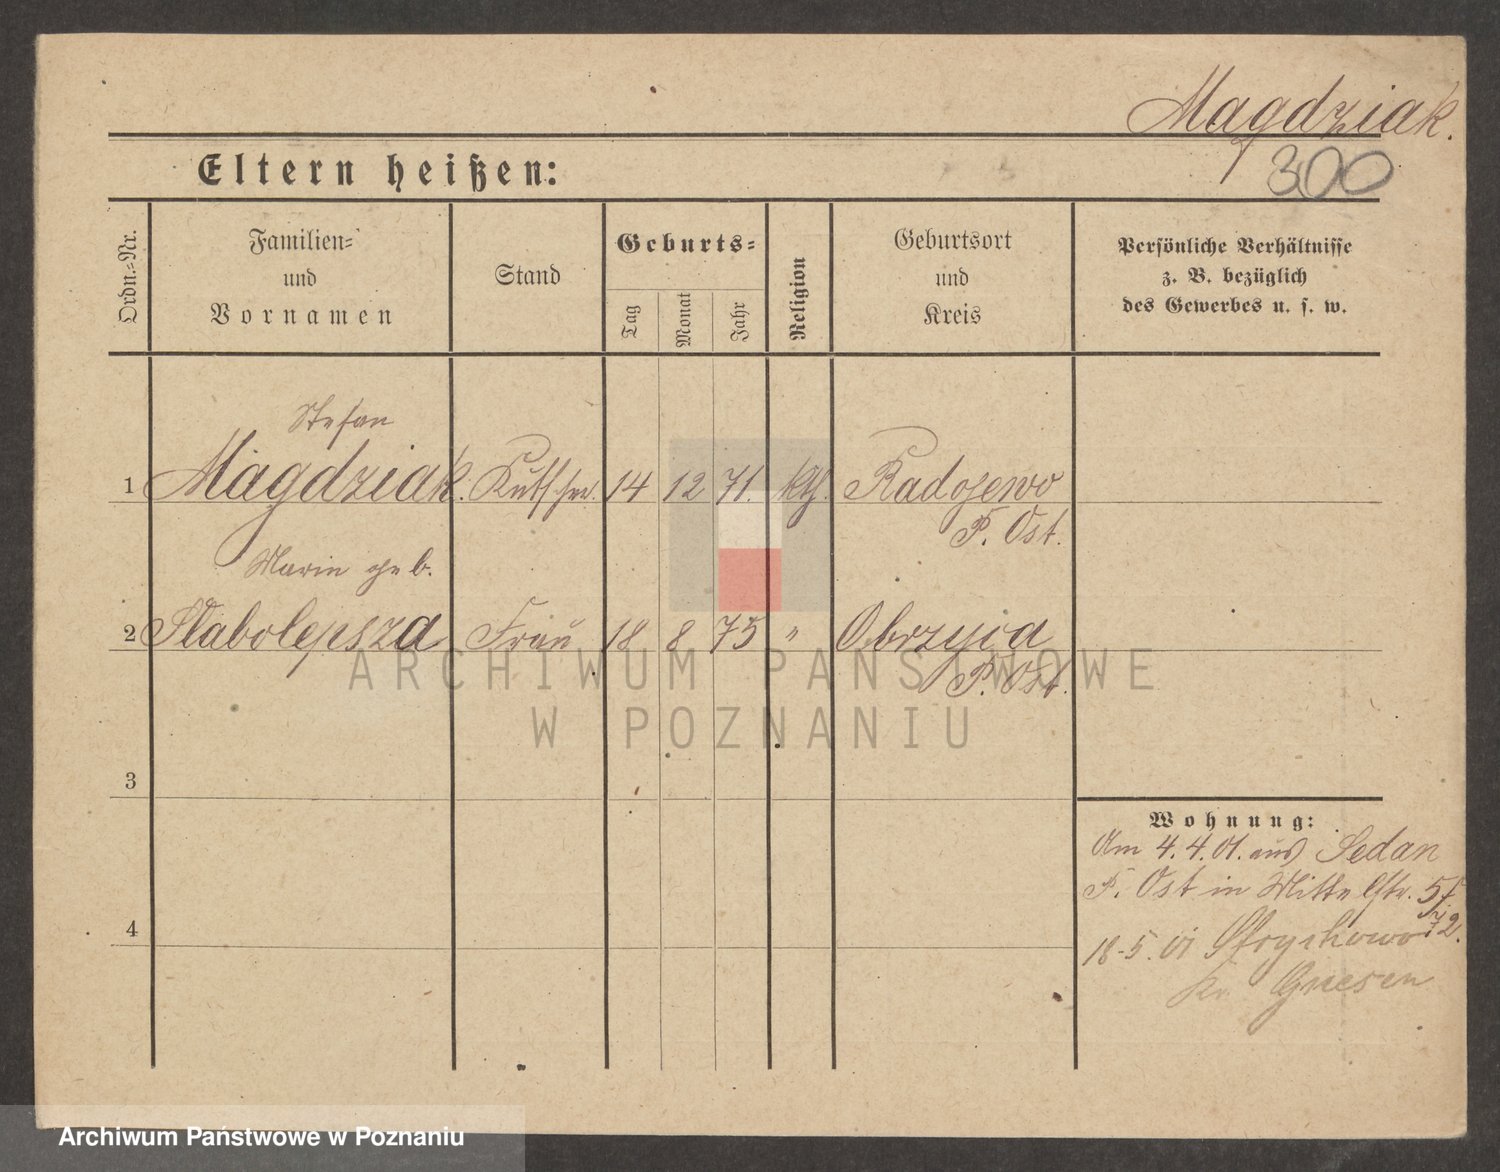 Magdziak.
300
Eltern heißen:
Ordn.-Nr.
Familien-
und
Vornamen
Stand
Geburts-
Tag
Monat
Jahr
Religion
Geburtsort
und
Kreis
Persönliche Verhältnisse
z. B. bezüglich
des Gewerbes u. s. w.
Stefan
1 Magdziak. Kutscher. 14 12 71. kth. Radojewo
P. Ost.
Marie geb.
2 Slabolepsza Frau 18 8 75 " Obrzyca
P. Ost.
3
Wohnung:
Am 4.4.01. aus Sedan
P. Ost in Mittelstr.
4
18-5. 01
Kr. Gnesen
ARCHIWUM PAŃSTWOWE
W POZNANIU
Archiwum Państwowe w Poznaniu